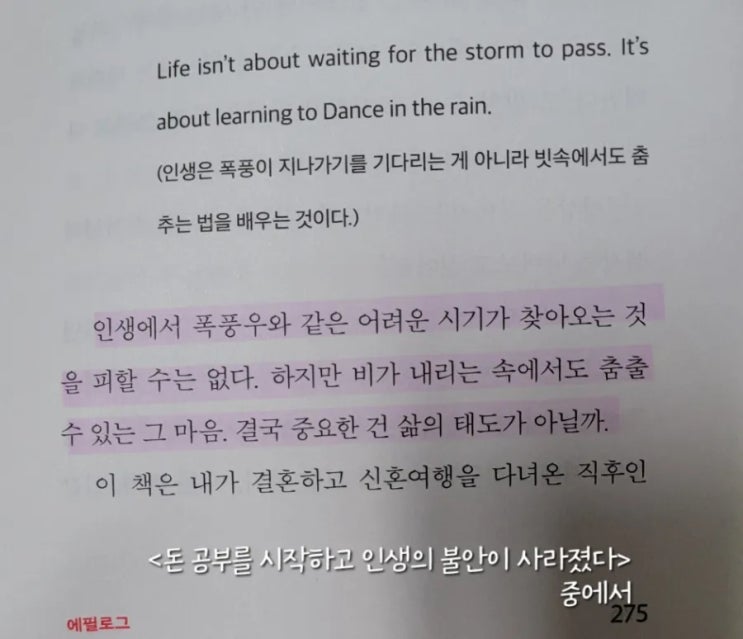 Life isn't about waiting for the storm to pass. It's
about learning to Dance in the rain.
(인생은 폭풍이 지나가기를 기다리는 게 아니라 빗속에서도 춤
추는 법을 배우는 것이다.)
인생에서 폭풍우와 같은 어려운 시기가 찾아오는 것
을 피할 수는 없다. 하지만 비가 내리는 속에서도 춤출
수 있는 그 마음. 결국 중요한 건 삶의 태도가 아닐까.
이 책은 내가 결혼하고 신혼여행을 다녀온 직후인
<돈 공부를 시작하고 인생의 불안이 사라졌다>
중에서
에필로그
275